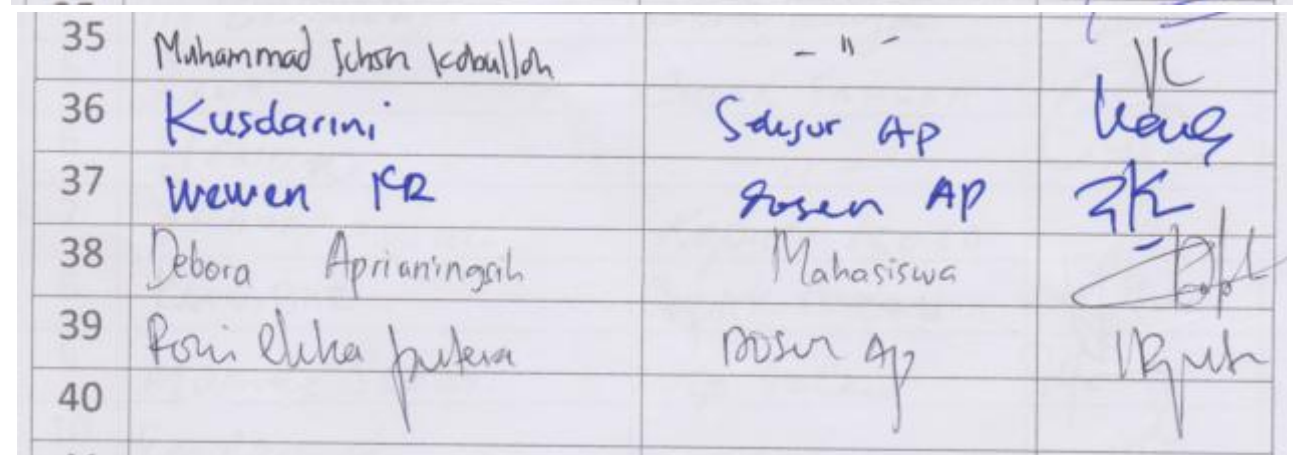 35 Muhammad Ichsan Kabulloh - " -
36 Kusdarini AP
37 Wewen KR Dosen AP
38 Debora Aprianingsih Mahasiswa
39 Roni Ekha putera Dosen AP
40